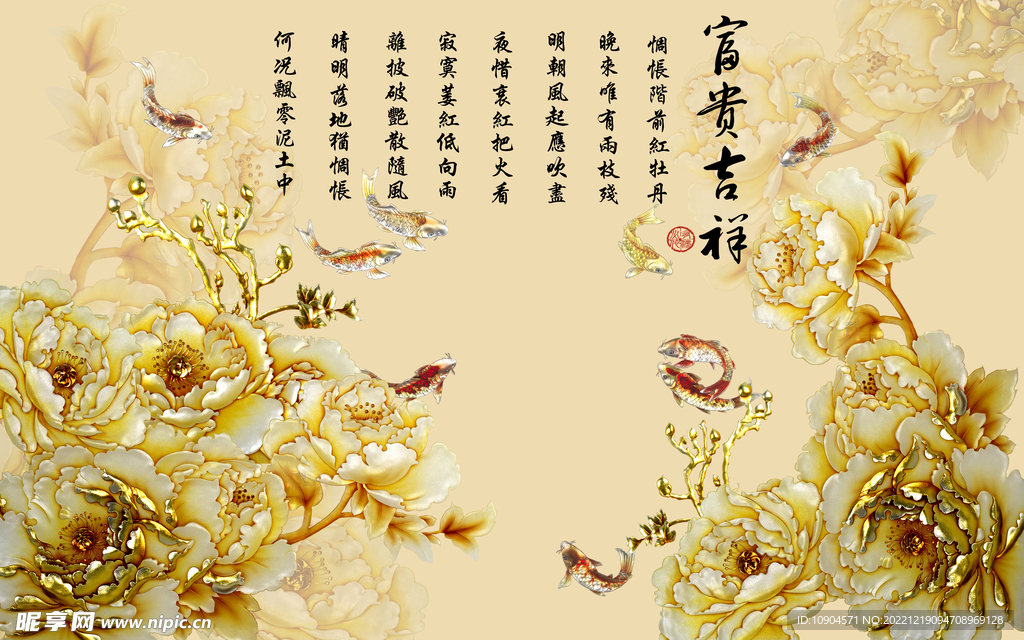 富貴吉祥
惆悵階前紅牡丹
晚來唯有兩枝殘
明朝風起應吹盡
夜惜衰紅把火看
寂寞萎紅低向雨
離披破艷散隨風
晴明落地猶惆悵
何況飄零泥土中
昵享网 www.nipic.cn
ID:10904571 NO:20221219094708969128